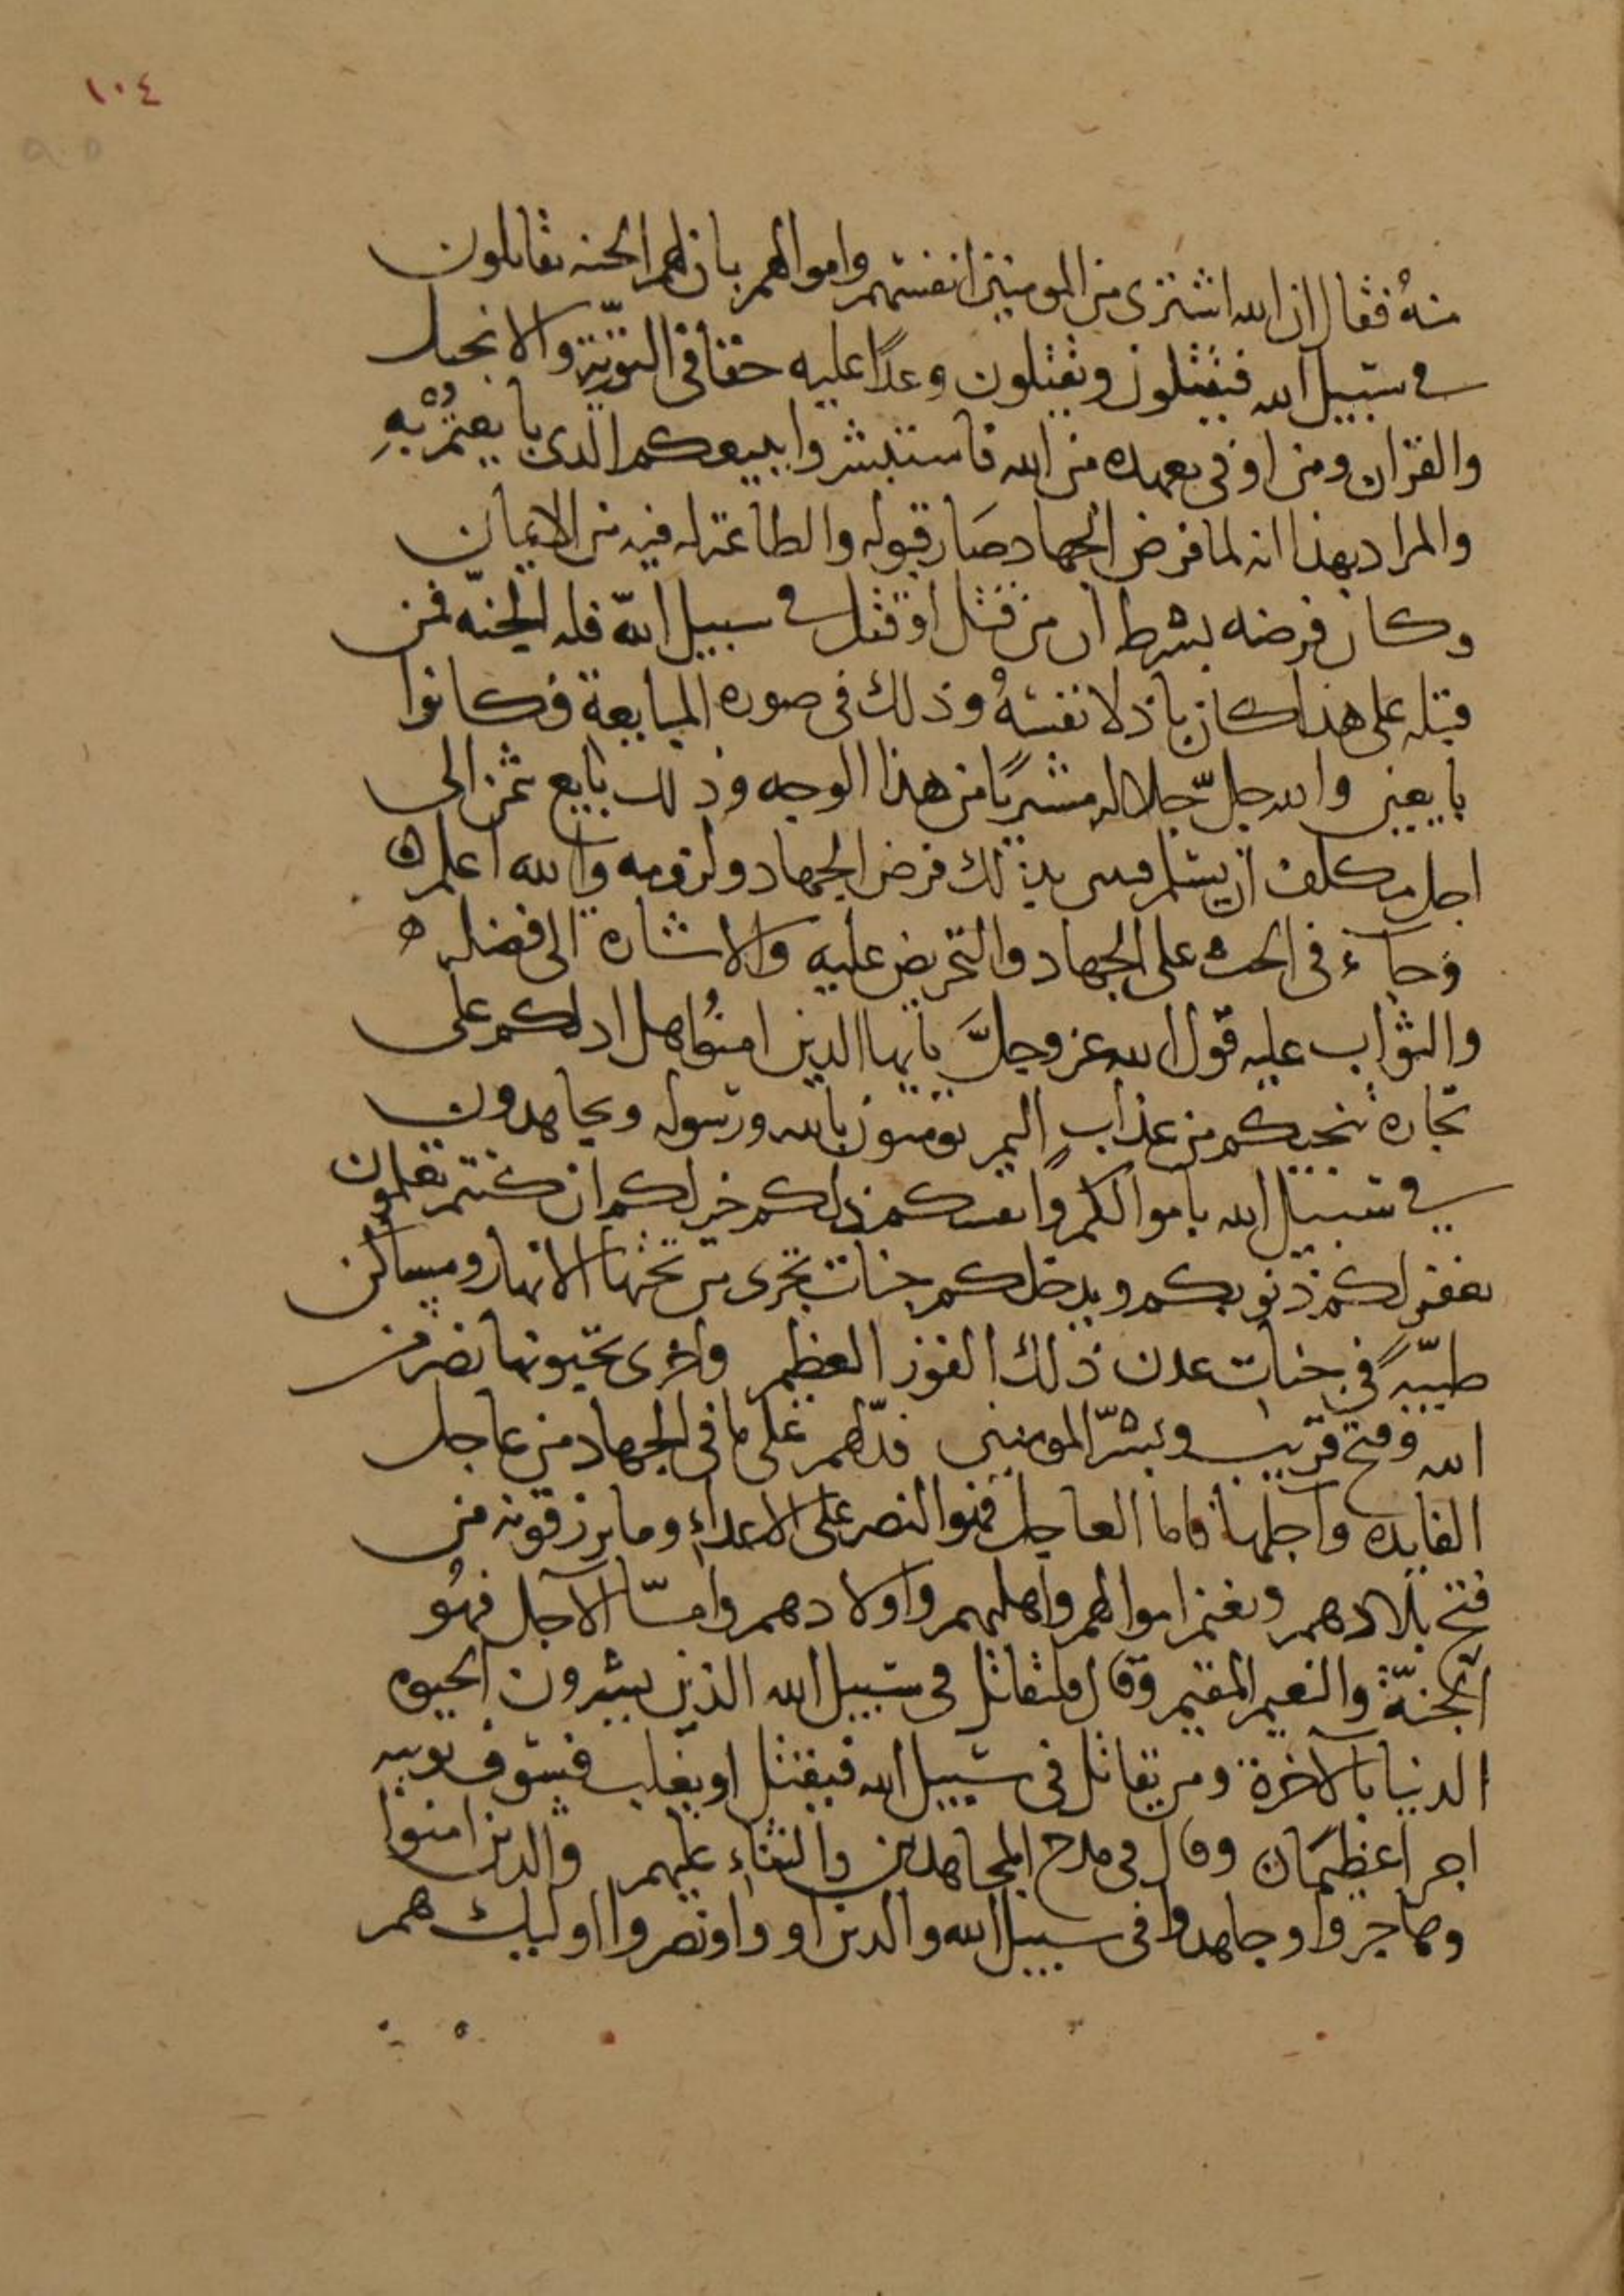 ١٠٤
منهُ فقال ان الله اشترى من المومنين انفسهم واموالهم بان لهم الجنه يقاتلون
في سبيل الله فيقتلون ويقتلون وعدًا عليه حقا في التورية والانجيل
والقران ومن اوفى بعهده من الله فاستبشروا ببيعكم الذى بايعتمُ بهِ
والمراد بهذا انه لما فرض الجهاد صَار قبوله والطاعة له فيه من الايمان
وكان فرضه بشرط ان من قتل او قتل في سبيل الله فله الجنّه فمن
قبله على هذا كان باذلا نفسهُ وذلك فى صوره المبايعة فكانوا
بايعين والله جلّ جلاله مشتريًا من هذا الوجه وذلك بايع ثمن الى
اجل مكلف ان يسلم بذلك فرض الجهاد ولزومه والله اعلم ه
وجآء فى الحث على الجهاد والتحريض عليه والاشارة الى فضله ه
والثواب عليه قول الله عز وجلَّ يايها الذين امنُوا هل ادلكم على
تجارة تنجيكم من عذابٍ اليم تومنون بالله ورسوله وتجاهدون
في سبيل الله باموالكم وانفسكم ذلكم خير لكم ان كنتم تعلمون
يغفر لكم ذنوبكم ويدخلكم جنات تجرى من تحتها الانهار ومساكن
طيبّهً في جنات عدن ذلك الفوز العظيم واخرى تحبونها نصر من
الله وفتح قريب وبشّر المومنين فدّلهم على ما فى الجهاد من عاجل
الفايده وآجلها فاما العاجل فهو النصر على الاعداءِ وما يرزقونه من
فتح بلادهم وتغنم اموالهم واهليهم واولادهم وامّا الآجل فهُو
الجنّة والنعيم المقيم وقال فليقاتل فى سبيل الله الذين يشرون الحيوه
الدنيا بالآخرة ومن يقاتل فى سبيل الله فيقتل او يغلب فسوف نوتيه
اجرا عظيمًا وقال فى مدح المجاهدين والثناءِ عليهم والذين امنوا
وهاجروا وجاهدوا فى سبيل الله والذين اووا ونصروا اوليك هم